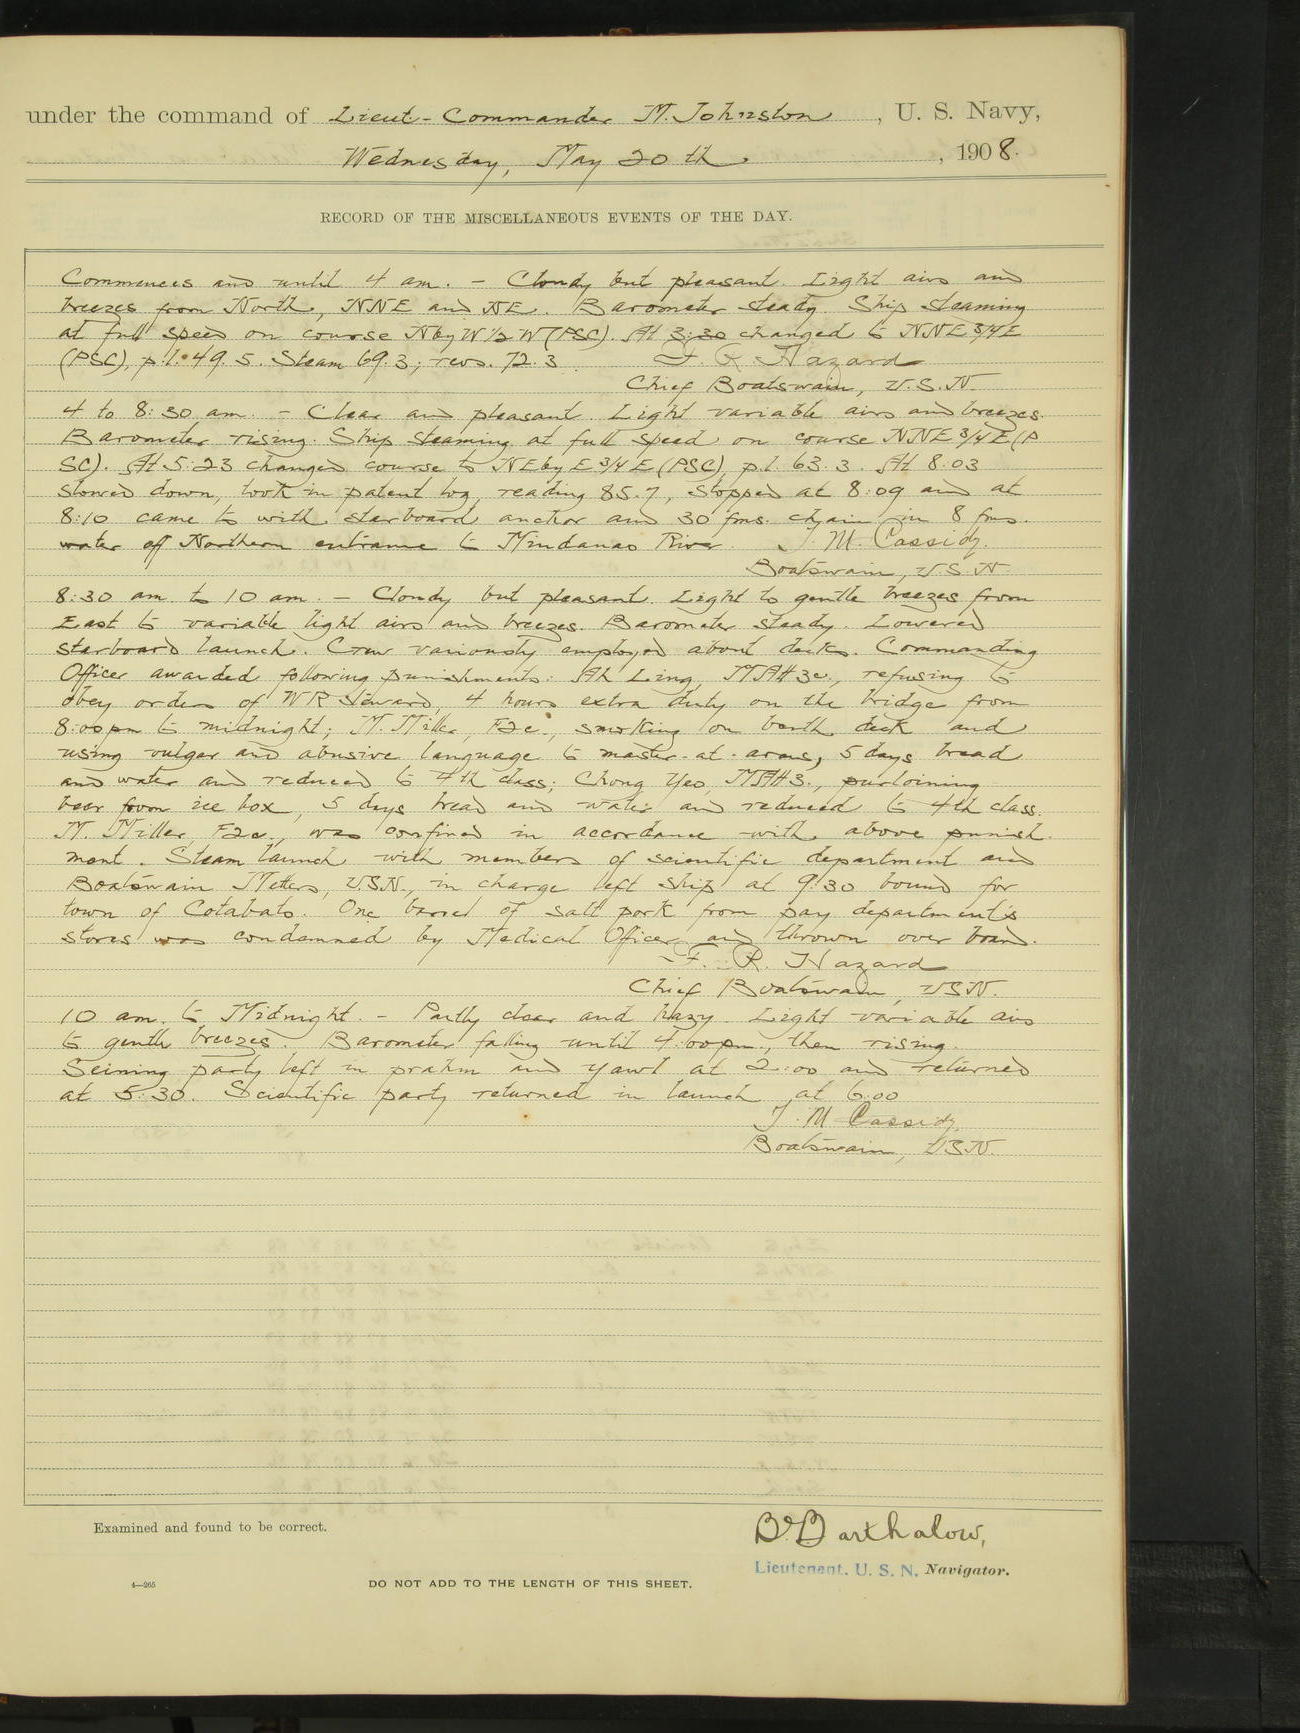 under the command of Lieut-Commander M. Johnston, U. S. Navy,
Wednesday, May 20th, 1908.
RECORD OF THE MISCELLANEOUS EVENTS OF THE DAY.
Commences and until 4 am. - Cloudy but pleasant. Light airs and
breezes from North, NNE and NE. Barometer steady. Ship steaming
at full speed on course NbyW½W (PSC). At 3:30 changed to NNE3/4E
(PSC), p.l. 49.5. Steam 69.3; revs. 72.3. F. R. Hazard
Chief Boatswain, U.S.N.
4 to 8:30 am. - Clear and pleasant. Light variable airs and breezes.
Barometer rising. Ship steaming at full speed on course NNE3/4E (P
SC). At 5:23 changed course to NEbyE3/4E (PSC), p.l. 63.3. At 8:03
slowed down, took in patent log, reading 85.7, stopped at 8:09 and at
8:10 came to with starboard anchor and 30 fms. chain in 8 fms.
water off Northern entrance to Mindanao River. J. M. Cassidy.
Boatswain, U.S.N.
8:30 am. to 10 am. - Cloudy but pleasant. Light to gentle breezes from
East to variable light airs and breezes. Barometer steady. Lowered
starboard launch. Crew variously employed about decks. Commanding
Officer awarded following punishments: Ah Ling, MAtt3c., refusing to
obey orders of WR Steward, 4 hours extra duty on the bridge from
8:00pm to midnight; M. Miller F2c., smoking on berth deck and
using vulgar and abusive language to master-at-arms, 5 days bread
and water and reduced to 4th class; Chong Yeo, MAtt3., purloining
beer from ice box, 5 days bread and water and reduced to 4th class.
M. Miller, F2c., was confined in accordance with above punish-
ment. Steam launch with members of scientific department and
Boatswain Metters, U.S.N., in charge left ship at 9:30 bound for
town of Cotabato. One barrel of salt pork from pay department's
stores was condemned by Medical Officer and thrown over board.
F. R. Hazard
Chief Boatswain, USN.
10 am. to Midnight. - Partly clear and hazy. Light variable airs
to gentle breezes. Barometer falling until 4:00pm., then rising.
Seining party left in prahm and yawl at 2:00 and returned
at 5:30. Scientific party returned in launch at 6:00
J. M. Cassidy.
Boatswain, USN.
Examined and found to be correct.
B. Barthalow,
Lieutenant. U. S. N. Navigator.
4—265
DO NOT ADD TO THE LENGTH OF THIS SHEET.